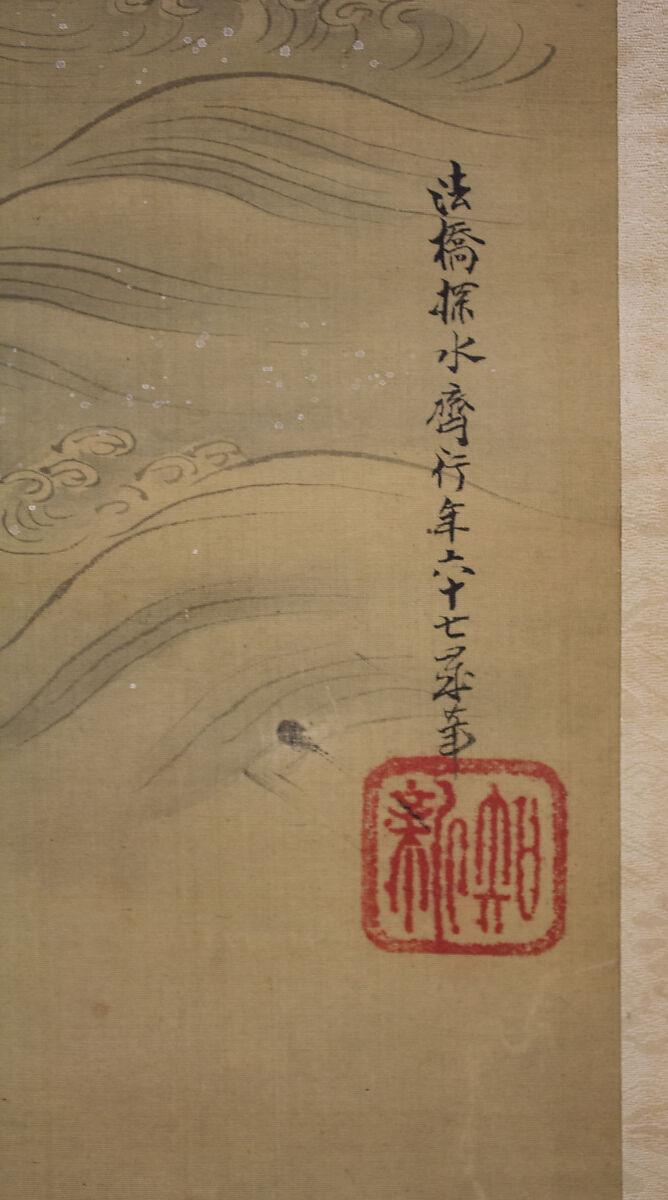 法橋探水齊行年六十七歳筆